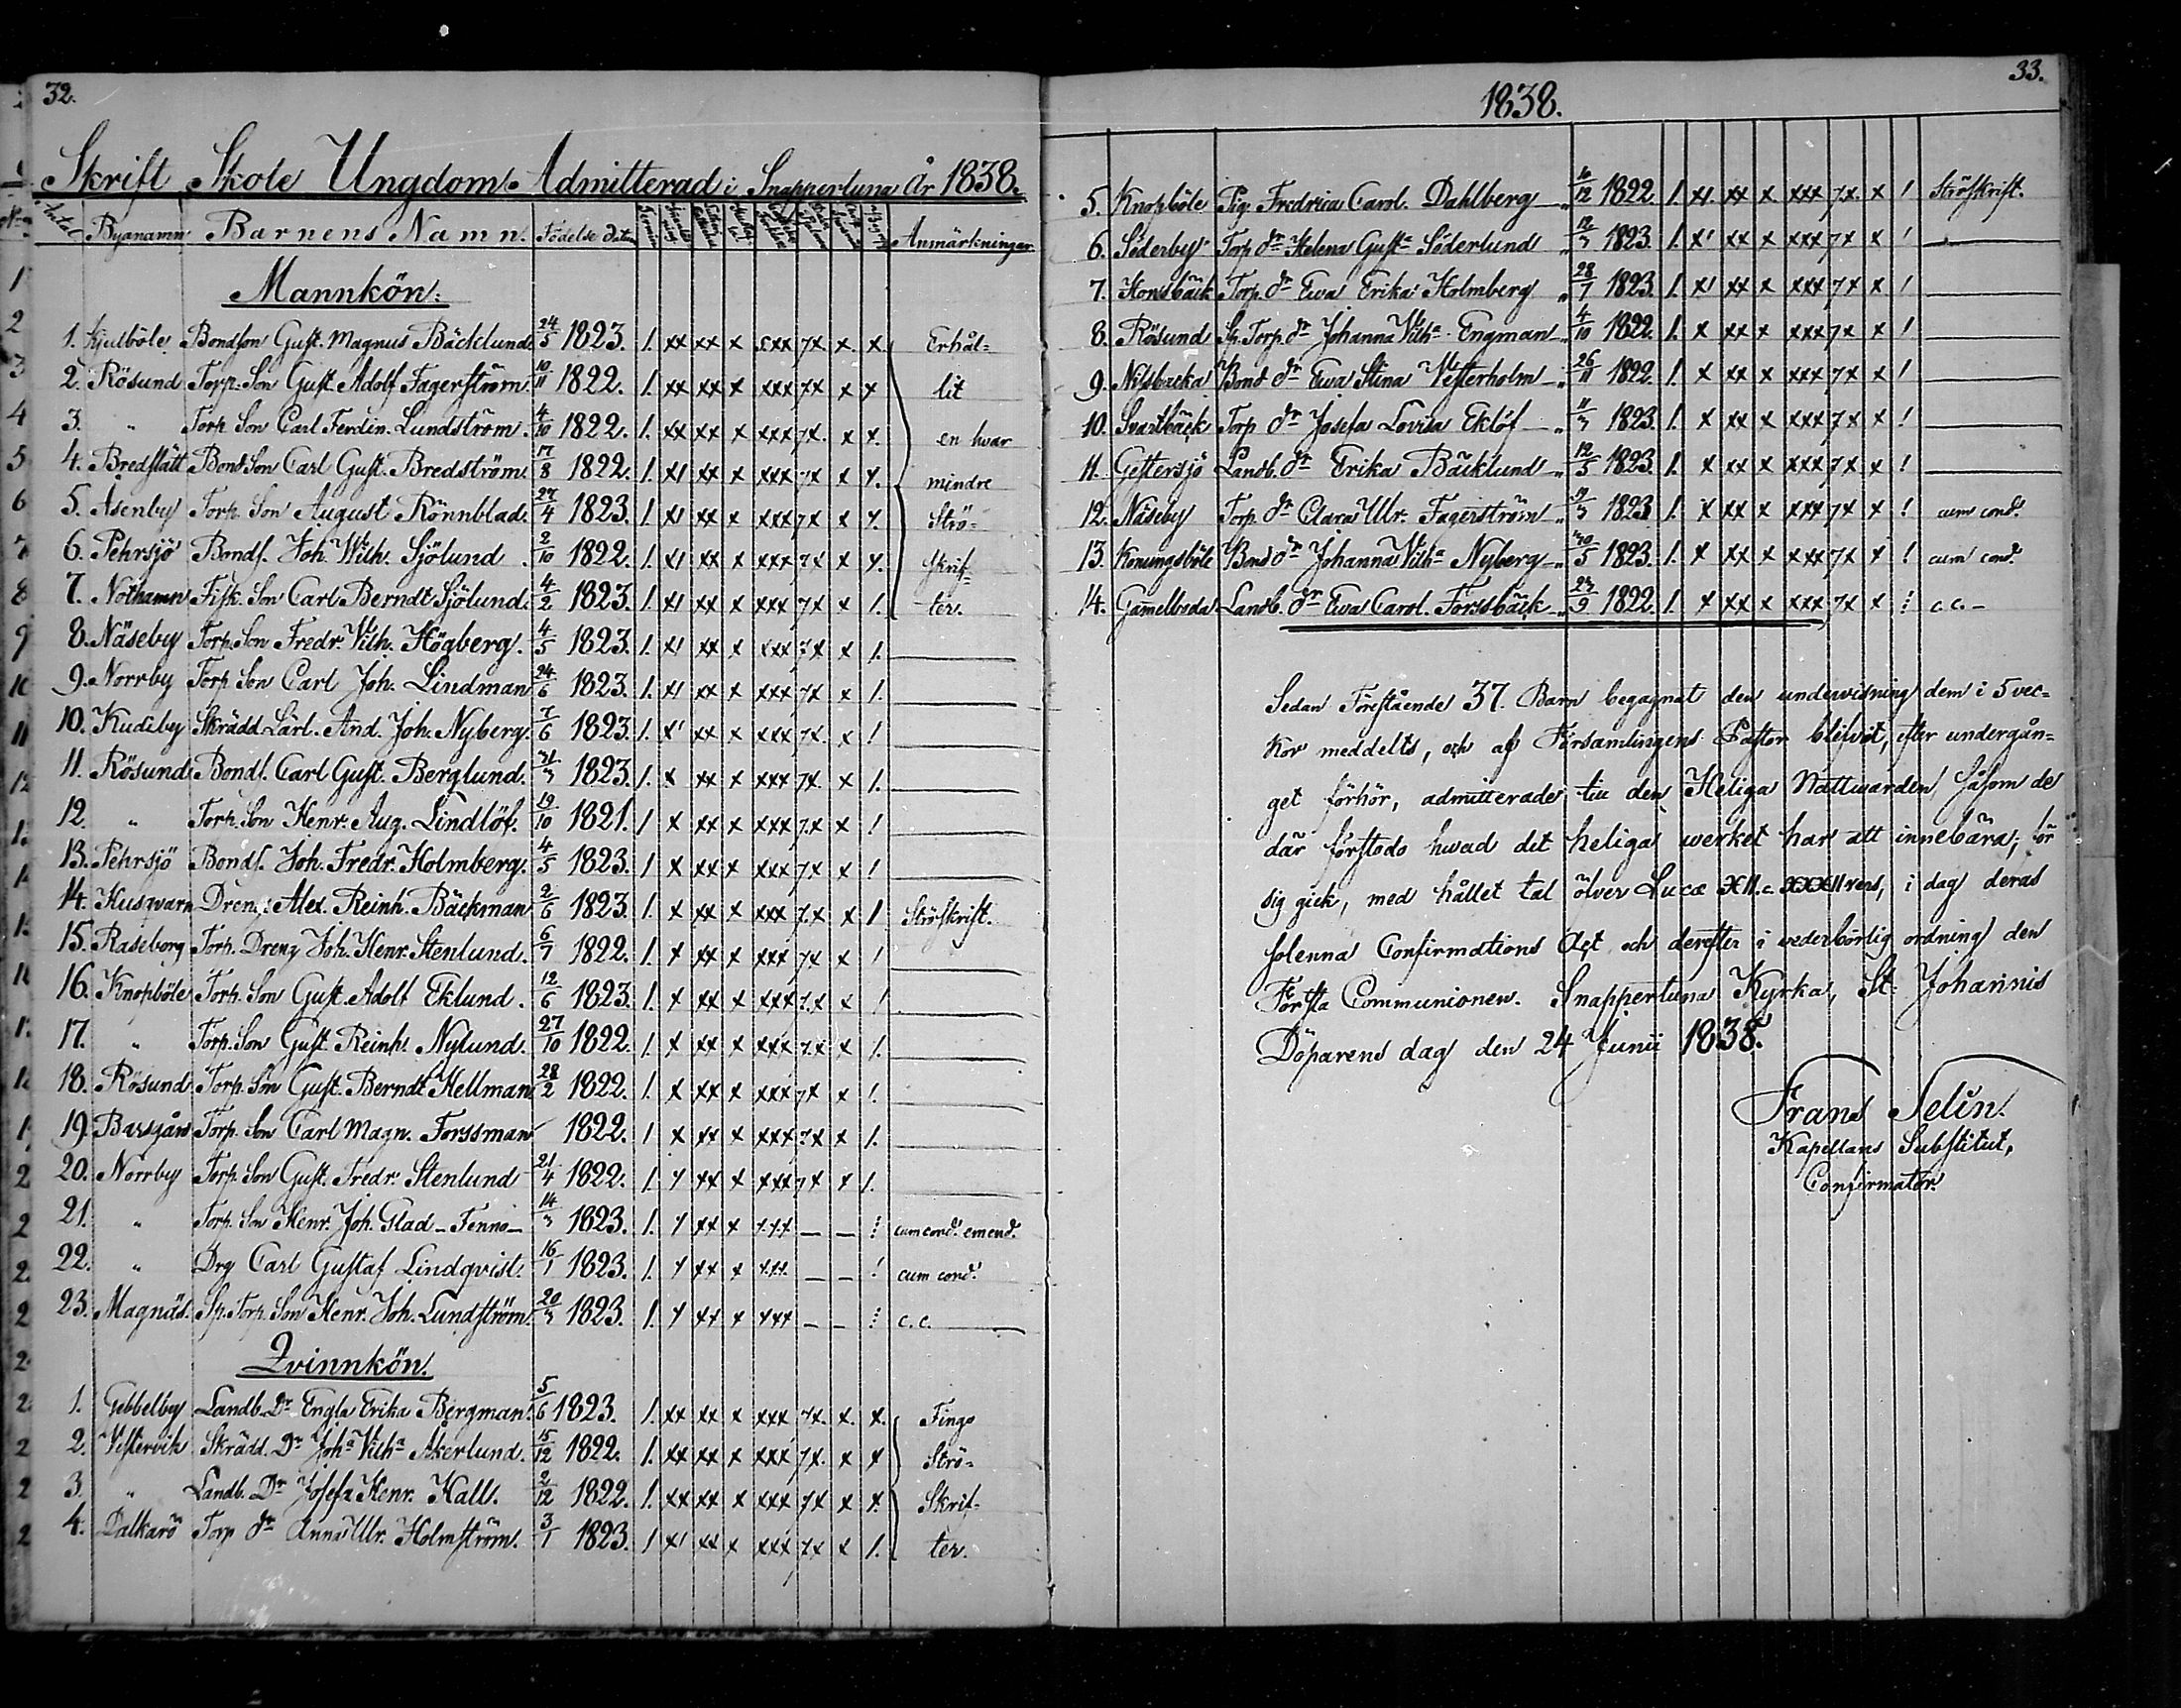 32.
Skrift Skole Ungdom Admitterad i Snappertuna År 1838.
Antal Byanamn Barnens Namn. Födelse datum Anmärkningar
Mannkön:
1. Kjulböle Bondson Gust. Magnus Bäcklund 24/5 1823. 1. xx xx x xxx 7x. x. x. Erhål-
2. Rösund Torp. Son Gust. Adolf Fagerström. 10/11 1822. 1. xx xx x xxx 7x x x lit
3. " Torp. Son Carl Ferdin. Lundström. 4/10 1822. 1. xx xx x xxx 7x. x x. en hvar
4. Bredslätt Bond Son Carl Gust. Bredström. 17/8 1822. 1. x1 xx x xxx 7x x x. mindre
5. Åsenby Torp. Son August Rönnblad. 27/4 1823. 1. x1 xx x xxx 7x x x. Strö-
6. Pehrsjö Bonds. Joh. Wilh. Sjölund 2/10 1822. 1. x1 xx x xxx 7x x x. skrif-
7. Nöthamn Fisk. Son Carl Berndt Sjölund. 4/2 1823. 1. x1 xx x xxx 7x x 1. ter.
8. Näseby Torp. Son Fredr. Vilh. Högberg. 4/5 1823. 1. x1 xx x xxx 7x x 1.
9. Norrby Torp. Son Carl Joh. Lindman 24/6 1823. 1. x1 xx x xxx 7x x 1.
10. Kudeby Skrädd. Lärl. And. Joh. Nyberg. 7/6 1823. 1. x1 xx x xxx 7x. x !
11. Rösund Bonds. Carl Gust. Berglund. 1823. 1. x xx x xxx 7x. x 1.
12. " Torp. Son Henr. Aug. Lindlöf. 19/10 1821. 1 x xx x xxx 7x x !
13. Pehrsjö Bonds. Joh. Fredr. Holmberg. 4/5 1823. 1 x xx x xxx 7x x !
14. Husqvarn Dreng Alex. Reinh. Bäckman 2/6 1823. 1. x xx x xxx 7x x 1 Ströskrift.
15. Raseborg Torp. Dreng Joh. Henr. Stenlund. 6/7 1822. 1. x xx x xxx 7x x !
16. Knopböle Torp. Son Gust. Adolf Eklund. 12/6 1823. 1. x xx x xxx 7x x !
17. " Torp. Son Gust. Reinh. Nylund. 27/10 1822. 1. x xx x xxx 7x x 1.
18. Rösund Torp. Son Gust. Berndt Hellman 28/2 1822. 1. x xx x xxx 7x x !
19. Basgård Torp. Son Carl Magn. Forssman 1822. 1 x xx x xxx 7x x 1.
20. Norrby Torp. Son Gust. Fredr. Stenlund 21/4 1822. 1. x xx x xxx 7x x 1.
21. " Torp. Son Henr. Joh. Glad - Fenno - 14/3 1823. 1. x xx x xxx — — ! cum cond. emend.
22. " Drg Carl Gustaf Lindqvist. 16/1 1823. 1. x xx x xxx — — ! cum cond.
23. Magnäs. Sp. Torp. Son Henr. Joh. Lundström 20/3 1823. 1. x xx x xxx — — ! c. c.
Qvinnkön.
1. Gebbelby Landb. Dr Engla Erika Bergman. 5/6 1823. 1. xx xx x xxx 7x. x. x. Fingo
2. Vestervik Skrädd. Dr Joha Vilha Åkerlund. 15/12 1822. 1. xx xx x xxx 7x. x x Strö-
3. " Landb. Dr Josefa Henr. Hall. 2/12 1822. 1. xx xx x xxx 7x x x. Skrif-
4. Dalkarö Torp. dr Anna Ulr. Holmström. 3/1 1823. 1 x1 xx x xxx 7x x 1. ter.
33.
1838.
5. Knopböle Pig. Fredrica Carol. Dahlberg 1822. 1. x1. xx x xxx 7x. x ! Ströskrift.
6. Söderby Torp. dr Helena Gusta Söderlund 12/3 1823. 1. x1 xx x xxx 7x x !
7. Horsbäck Torp. dr Eva Erika Holmberg 28/7 1823. 1. x1 xx x xxx 7x x !
8. Rösund Sp. Torp. dr Johanna Vilha Engman 4/10 1822. 1. x xx x xxx 7x x !
9. Nilsbacka Bond dr Eva Stina Vesterholm 26/11 1822. 1. x xx x xxx 7x x !
10. Svartbäck Torp. dr Josefa Lovisa Eklöf 11/3 1823. 1. x xx x xxx 7x x !
11. Gestersjö Landb. dr Erika Bäcklund 12/5 1823. 1. x xx x xxx 7x x !
12. Näseby Torp. dr Clara Ulr. Fagerström 1823 1. x xx x xxx 7x x ! cum cond.
13. Konungsböle Bond dr Johanna Vilha Nyberg 1823. 1. x xx x xxx 7x x ! cum cond.
14. Gamelboda Landb. dr Eva Carol. Forssbäck 1822. 1. x xx x xxx 7x x ! c. c. -
Sedan Förestående 37. Barn begagnat den undervisning dem i 5 vec-
kor meddelts, och af Församlingens Pastor blifvit, efter undergån-
get förhör, admitterade till den Heliga Nattwarden såsom de
där förstodo hwad det heliga werket har att innebära, för
sig gick, med hållet tal öfver Lucæ XII.c. XXXII vers, i dag deras
solenna Confirmations Act och derefter i vederbörlig ordning den
Första Communionen. Snappertuna Kyrka, St. Johannis
Döparens dag den 24 Junii 1838.
Frans Selin.
Kapellans Substitut,
Confirmator.